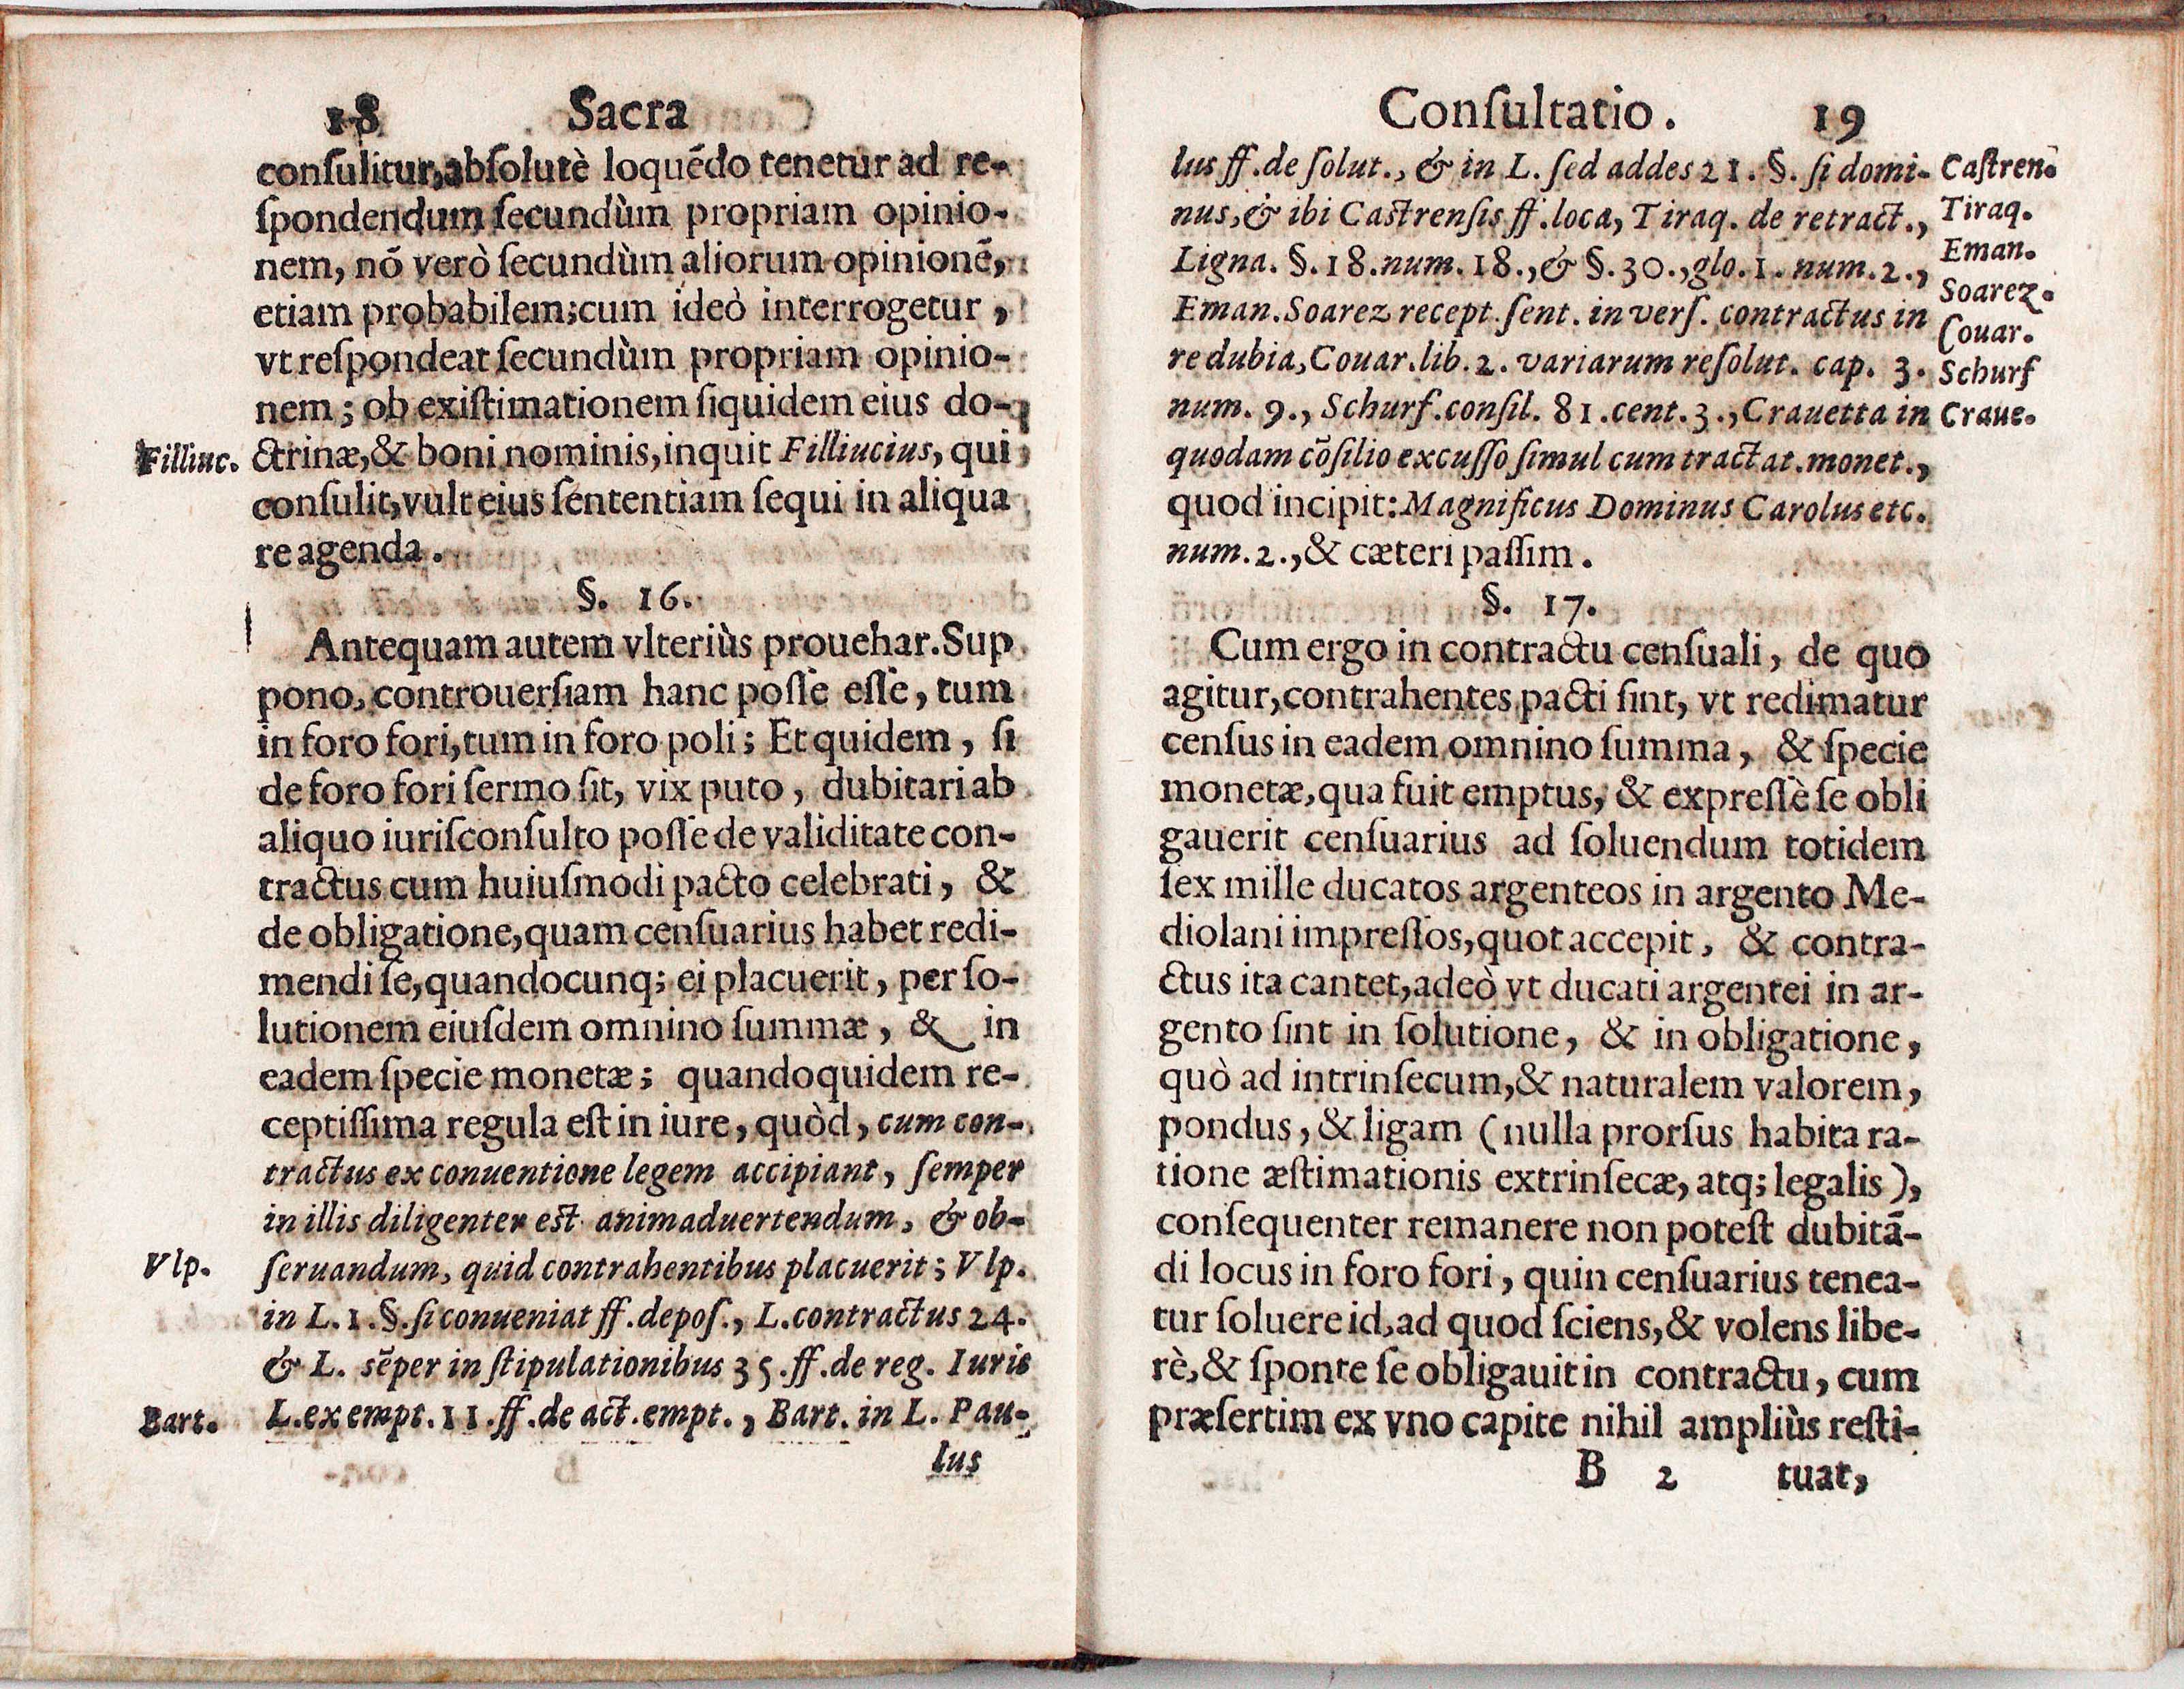 18 Sacra
conſulitur, abſolutè loquẽdo tenetur ad re-
ſpondendum ſecundùm propriam opinio-
nem, nõ verò ſecundùm aliorum opinionẽ,
etiam probabilem; cum ideò interrogetur,
vt reſpondeat ſecundùm propriam opinio-
nem; ob exiſtimationem ſiquidem eius do-
Filliuc.
ctrinæ, & boni nominis, inquit Filliucius, qui
conſulit, vult eius ſententiam ſequi in aliqua
re agenda.
§. 16.
Antequam autem vlteriùs prouehar. Sup
pono, controuerſiam hanc poſſe eſſe, tum
in foro fori, tum in foro poli; Et quidem, ſi
de foro fori ſermo ſit, vix puto, dubitari ab
aliquo iuriſconſulto poſſe de validitate con-
tractus cum huiuſmodi pacto celebrati, &
de obligatione, quam cenſuarius habet redi-
mendi ſe, quandocunq; ei placuerit, per ſo-
lutionem eiuſdem omnino ſummæ, & in
eadem ſpecie monetæ; quandoquidem re-
ceptiſſima regula eſt in iure, quòd, cum con-
tractus ex conuentione legem accipiant, ſemper
in illis diligenter eſt animaduertendum, & ob-
Vlp.
ſeruandum, quid contrahentibus placuerit; Vlp.
in L. 1. §. ſi conueniat ff. depoſ., L. contractus 24.
& L. sẽper in ſtipulationibus 35. ff. de reg. Iuris
Bart.
L. ex empt. 11. ff. de act. empt., Bart. in L. Pau-
lus
Conſultatio. 19
lus ff. de ſolut., & in L. ſed addes 21. §. ſi domi-
nus, & ibi Caſtrenſis ff. loca, Tiraq. de retract.,
Ligna. §. 18. num. 18., & §. 30., glo. 1. num. 2.,
Eman. Soarez recept. ſent. in verſ. contractus in
re dubia, Couar. lib. 2. variarum reſolut. cap. 3.
num. 9., Schurf. conſil. 81. cent. 3., Crauetta in
quodam cõſilio excuſſo ſimul cum tractat. monet.,
quod incipit: Magnificus Dominus Carolus etc.
num. 2., & cæteri paſſim.
Caſtren.
Tiraq.
Eman.
Soarez.
Couar.
Schurf
Craue.
§. 17.
Cum ergo in contractu cenſuali, de quo
agitur, contrahentes pacti ſint, vt redimatur
cenſus in eadem omnino ſumma, & ſpecie
monetæ, qua fuit emptus, & expreſſè ſe obli
gauerit cenſuarius ad ſoluendum totidem
ſex mille ducatos argenteos in argento Me-
diolani impreſſos, quot accepit, & contra-
ctus ita cantet, adeò vt ducati argentei in ar-
gento ſint in ſolutione, & in obligatione,
quò ad intrinſecum, & naturalem valorem,
pondus, & ligam (nulla prorſus habita ra-
tione æſtimationis extrinſecæ, atq; legalis),
conſequenter remanere non poteſt dubitã-
di locus in foro fori, quin cenſuarius tenea-
tur ſoluere id, ad quod ſciens, & volens libe-
rè, & ſponte ſe obligauit in contractu, cum
præſertim ex vno capite nihil ampliùs reſti-
B 2 tuat,